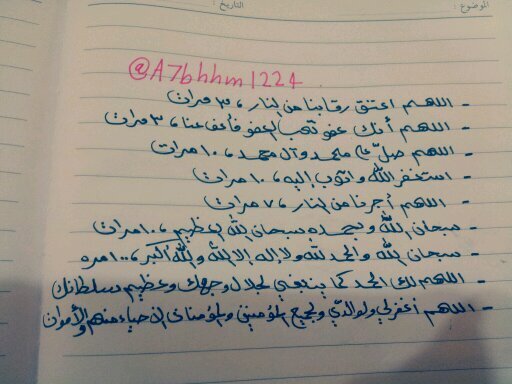 الموضوع:
التاريخ:
@A7bhhm1224
- اللهم اعتق رقابنا من النار، ٣ مرات
- اللهم أنك عفو تحب العفو فأعف عنا، ٣ مرات
- اللهم صلّ على محمد وآل محمد، ١٠ مرات
- استغفر الله واتوب إليه، ١٠ مرات
- اللهم أجرنا من النار، ٧ مرات
- سبحان الله وبحمده سبحان الله العظيم، ١٠ مرات
- سبحان الله والحمد لله ولا إله إلا الله والله أكبر، ١٠٠ مره
- اللهم لك الحمد كما ينبغي لجلال وجهك وعظيم سلطانك
- اللهم أغفر لي ولوالديّ ولجميع المؤمنين والمؤمنات الاحياء منهم والأموات